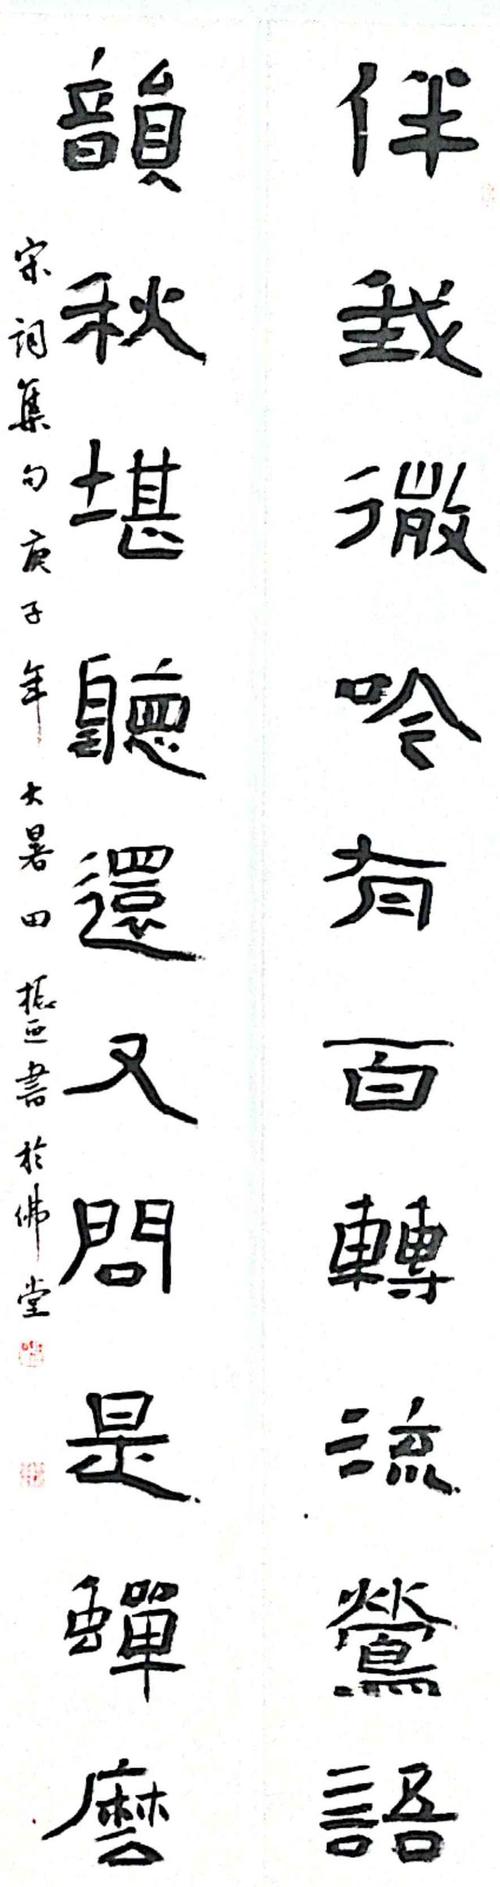 伴我微吟有百轉流鶯語
韻秋堪聽還又問是蟬麼
宋詞集句庚子年大暑田振亞書於佛堂